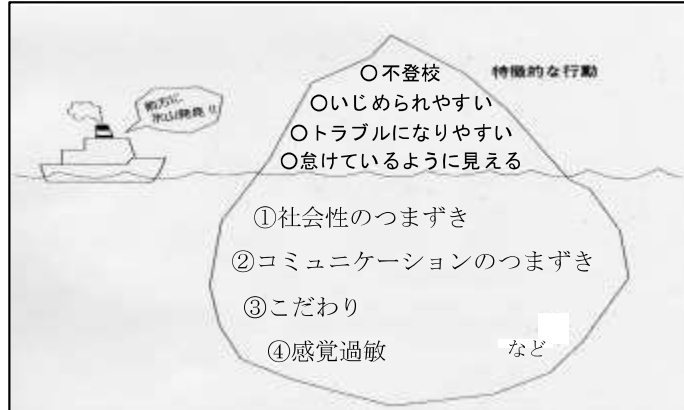 前方に
氷山発見!!
特徴的な行動
○不登校
○いじめられやすい
○トラブルになりやすい
○怠けているように見える
①社会性のつまずき
②コミュニケーションのつまずき
③こだわり
④感覚過敏 など